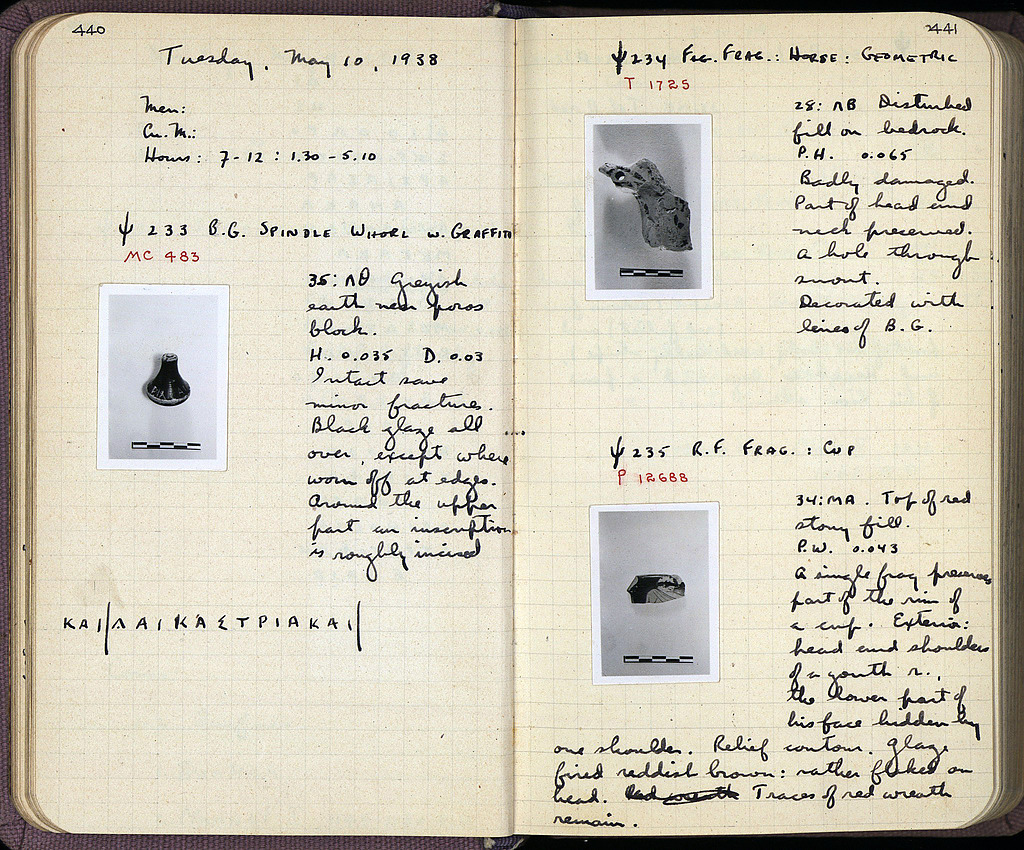 440
Tuesday, May 10, 1938
Men:
Cu. M.:
Hours: 7-12 : 1.30 - 5.10
ψ 233 B.G. SPINDLE WHORL W. GRAFFITO
MC 483
35: ΛΘ Greyish
earth near poros
block.
H. 0.035 D. 0.03
Intact save
minor fractures.
Black glaze all
over, except where
worn off at edges.
Around the upper
part an inscription
is roughly incised
ΚΑΙ|ΛΑΙΚΑΣΤΡΙΑΚΑΙ|
441
ψ 234 FIG. FRAG.: HORSE: GEOMETRIC
T 1725
28: ΛΒ Disturbed
fill on bedrock.
P.H. 0.065
Badly damaged.
Part of head and
neck preserved.
A hole through
snout.
Decorated with
lines of B.G.
ψ 235 R.F. FRAG.: CUP
P 12688
34: ΜΑ. Top of red
stony fill.
P.W. 0.043
A single frag preserves
part of the rim of
a cup. Exterior:
head and shoulders
of a youth r.,
the lower part of
his face hidden by
one shoulder. Relief contour. Glaze
fired reddish brown: rather flaked on
head. Red wreath Traces of red wreath
remain.